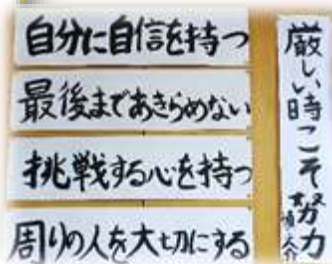 自分に自信を持つ
最後まであきらめない
挑戦する心を持つ
周りの人を大切にする
厳しい時こそ努力